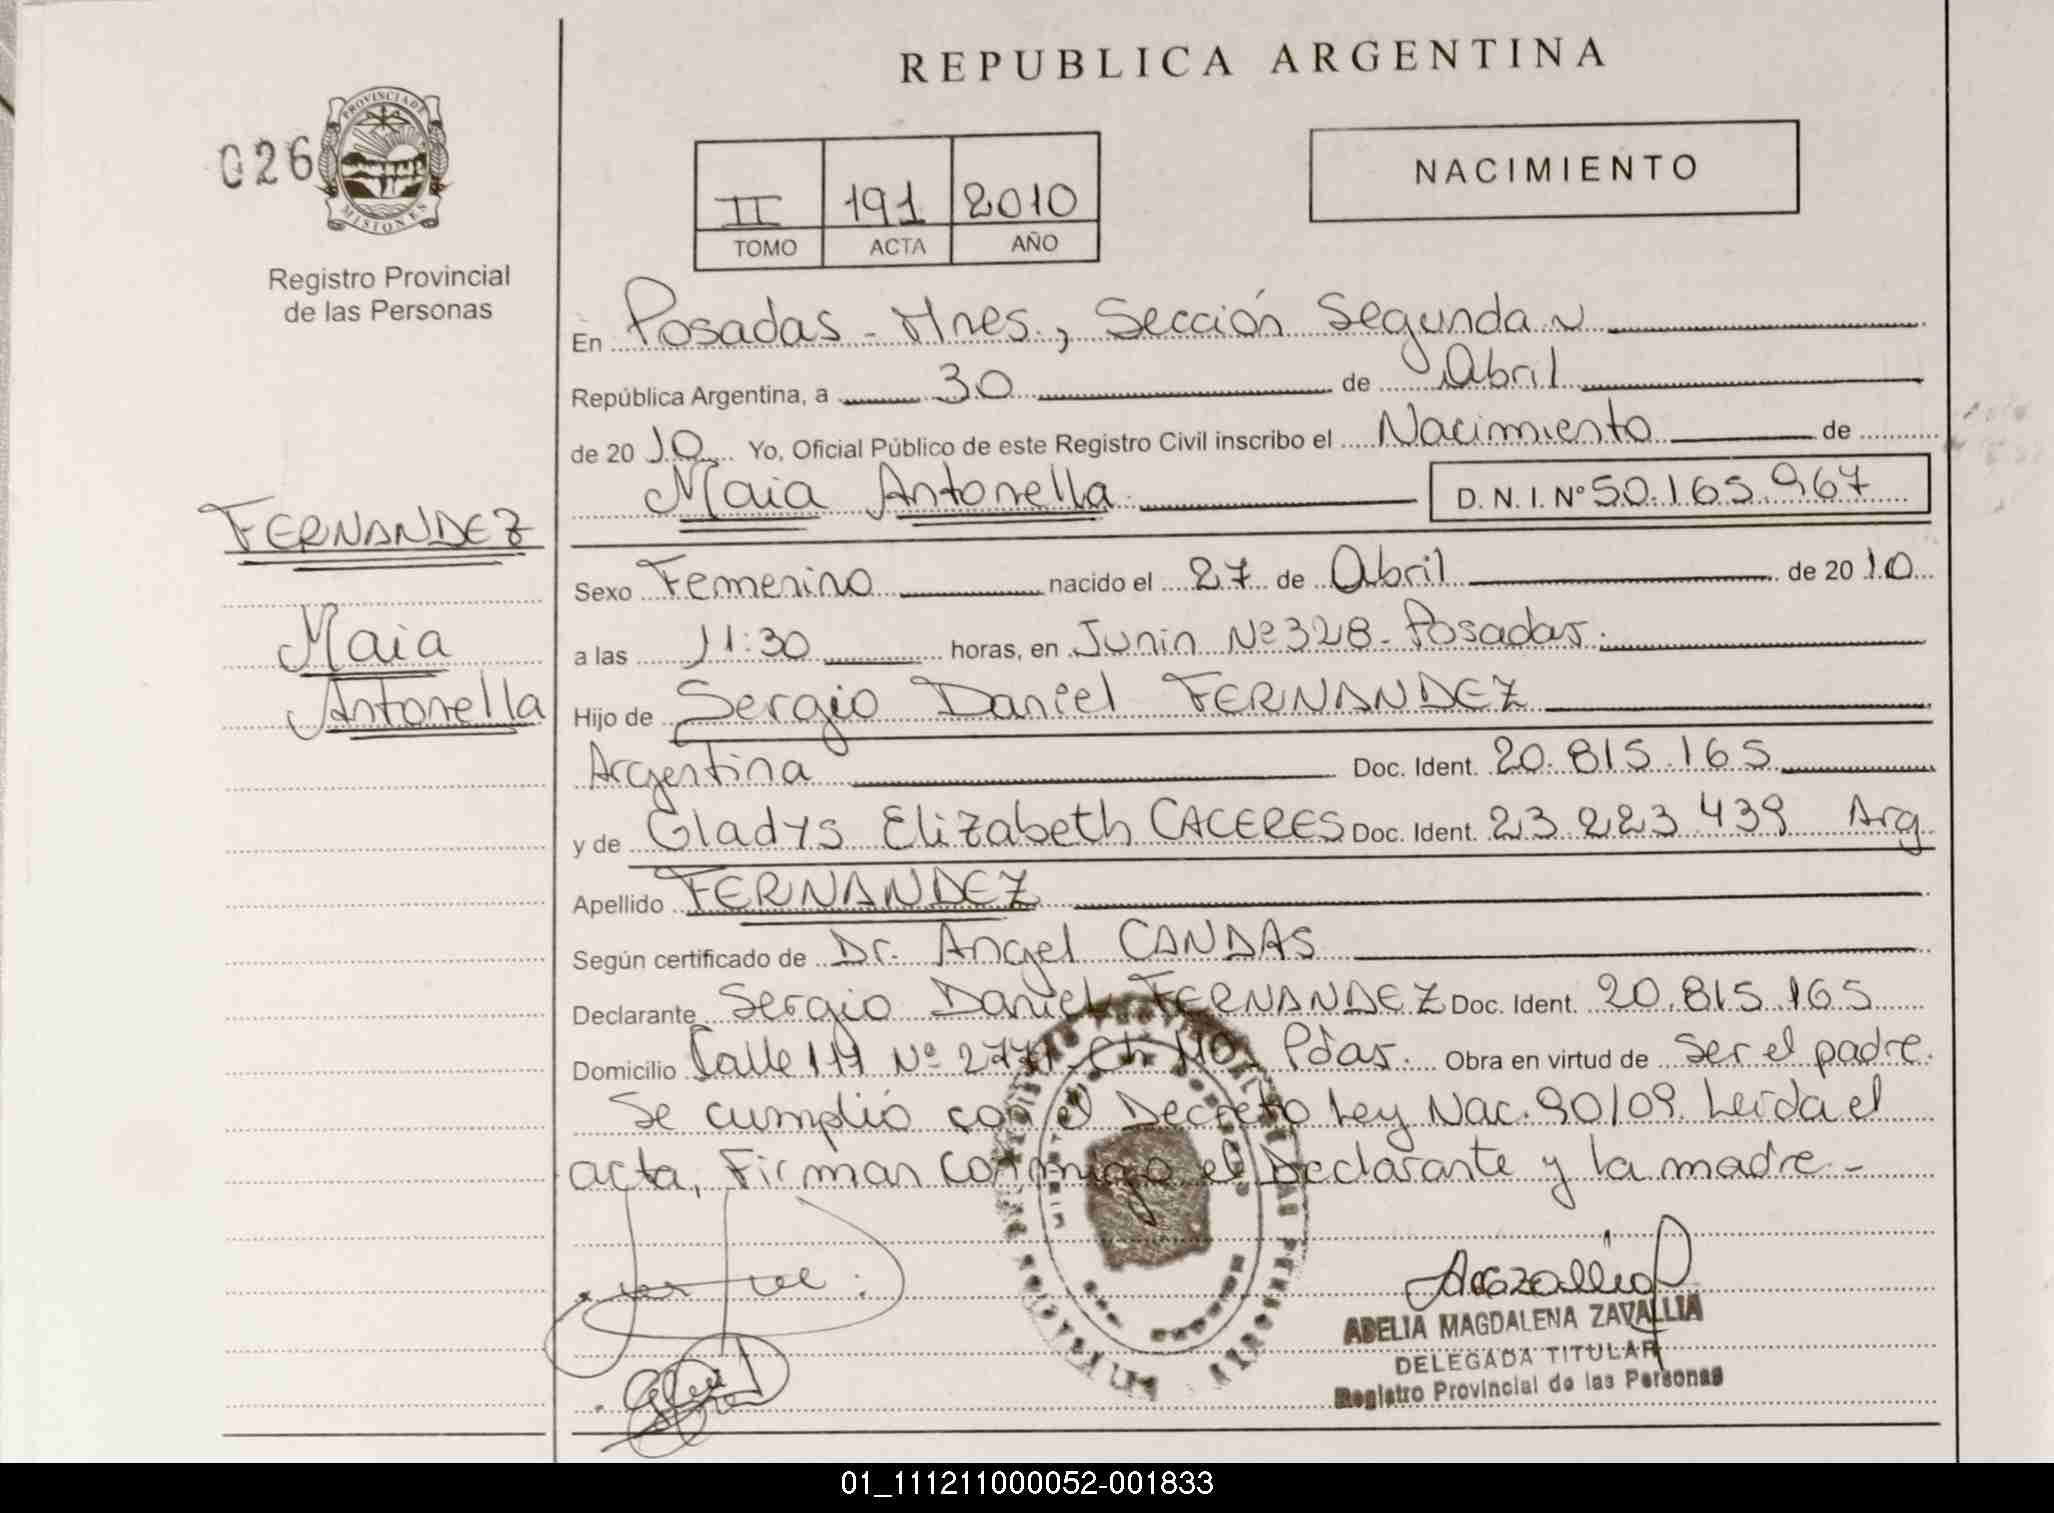 REPUBLICA ARGENTINA
026
PROVINCIA DE
MISIONES
Registro Provincial
de las Personas
II 191 2010
TOMO ACTA AÑO
NACIMIENTO
En Posadas - Mnes., Sección Segunda
República Argentina, a 30 de Abril
de 2010 Yo, Oficial Público de este Registro Civil inscribo el Nacimiento de
Maia Antonella D. N. I. Nº 50.165.967
FERNANDEZ
Maia
Antonella
Sexo Femenino nacido el 27 de Abril de 2010
a las 11:30 horas, en Junin Nº 328 - Posadas.
Hijo de Sergio Daniel FERNANDEZ
Argentina Doc. Ident. 20.815.165
y de Gladys Elizabeth CACERES Doc. Ident. 23.223.439 Arg
Apellido FERNANDEZ
Según certificado de Dr. Angel CANDAS
Declarante Sergio Daniel FERNANDEZ Doc. Ident. 20.815.165
Domicilio Calle 111 Nº Ch 110 - Pdas. Obra en virtud de ser el padre.
Se cumplió con el Decreto Ley Nac. 90/09. Leida el
acta, Firman conmigo el Declarante y la madre -
ABELIA MAGDALENA ZAVALLIA
DELEGADA TITULAR
Registro Provincial de las Personas
01_111211000052-001833